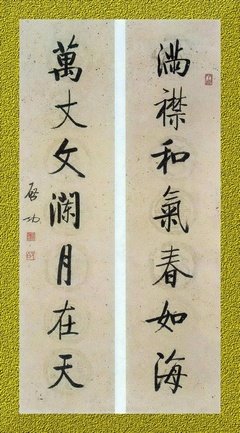 満襟和氣春如海
萬丈文瀾月在天
啟功